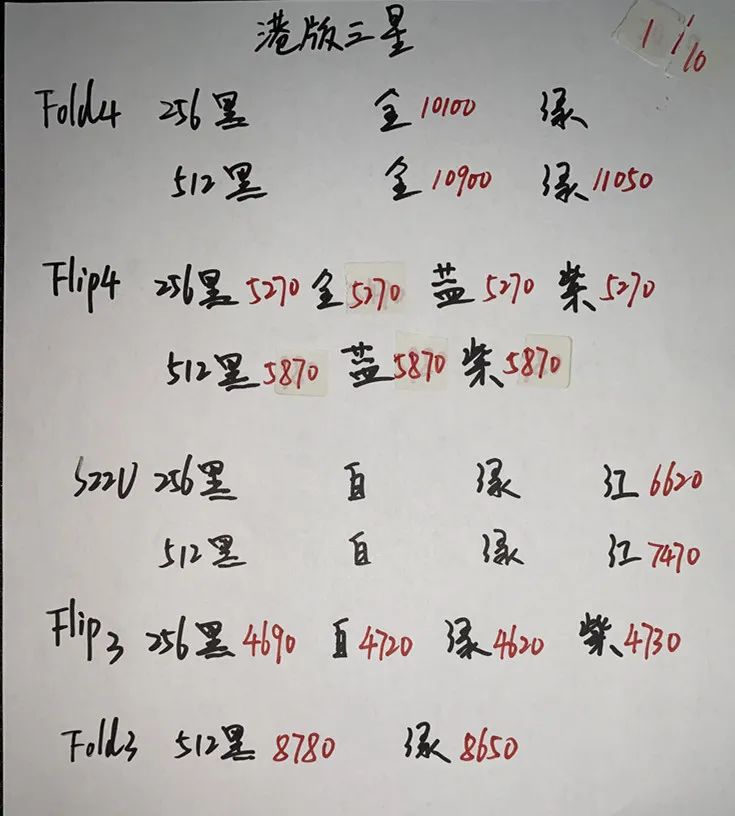 港版三星 1/10
Fold4 256黑 金10100 绿
512黑 金10900 绿11050
Flip4 256黑5270 金5270 蓝5270 紫5270
512黑5870 蓝5870 紫5870
S22U 256黑 白 绿 红6620
512黑 白 绿 红7470
Flip3 256黑4690 白4720 绿4620 紫4730
Fold3 512黑8780 绿8650